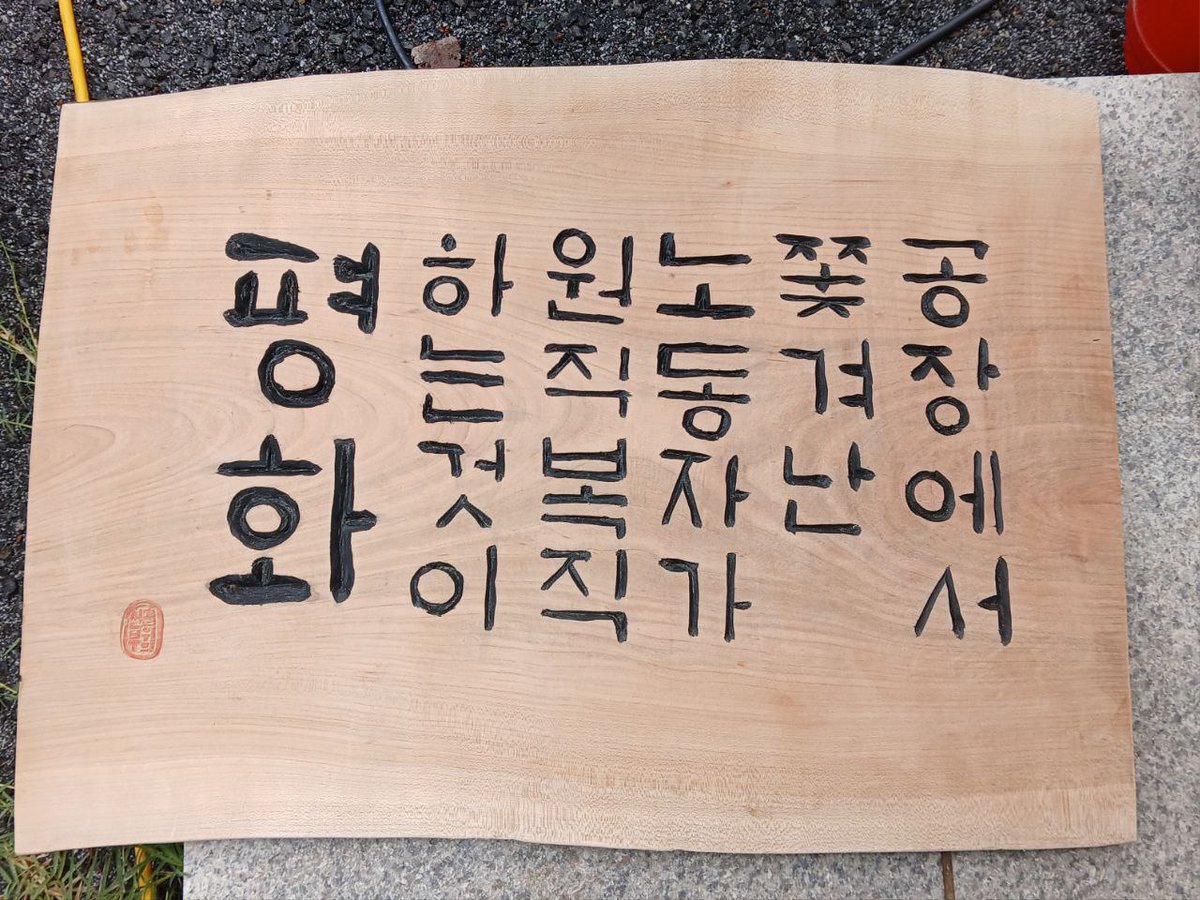 공장에서
쫓겨난
노동자가
원직복직
하는것이
평화